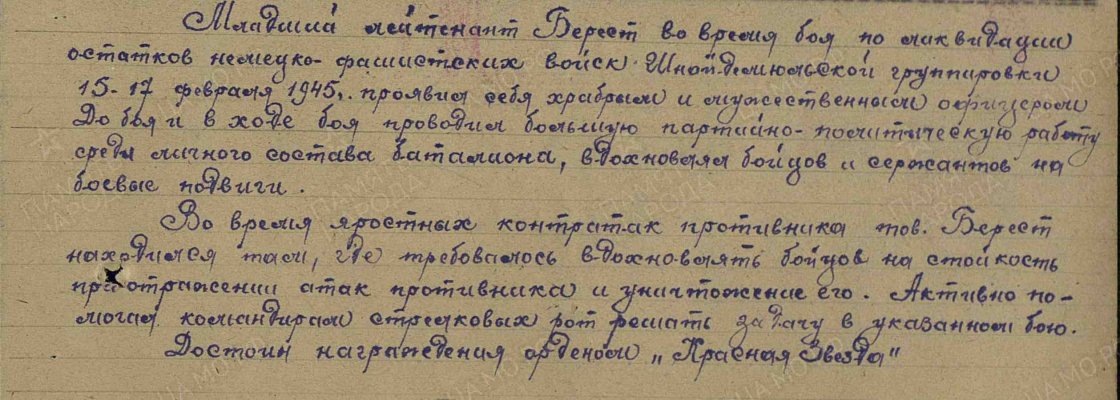 Младший лейтенант Берест во время боя по ликвидации
остатков немецко-фашистских войск Шнайдемюльской группировки
15-17 февраля 1945г. проявил себя храбрым и мужественным офицером
До боя и в ходе боя проводил большую партийно-политическую работу
среди личного состава баталиона, вдохновлял бойцов и сержантов на
боевые подвиги.
Во время яростных контратак противника тов. Берест
находился там, где требовалось вдохновлять бойцов на стойкость
при отражении атак противника и уничтожение его. Активно по-
могал командирам стрелковых рот решать задачу в указанном бою.
Достоин награждения орденом „Красная Звезда"